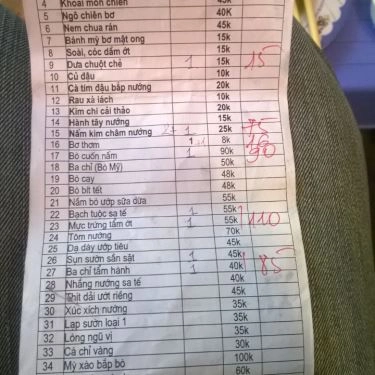 4 Khoai môn chiên 45K
5 Ngô chiên bơ 40K
6 Nem chua rán 45k
7 Bánh mỳ bơ mật ong 15k
8 Soài, cóc dầm ớt 15k
9 Dưa chuột chẻ 1 15k 15
10 Củ đậu 10k
11 Cà tím đậu bắp nướng 20k
12 Rau xà lách 10k
13 Kim chi cải thảo 20k
14 Hành tây nướng 15k
15 Nấm kim châm nướng 2+ 1 25k 75
16 Bơ thơm 1 +1 8k 16
17 Bò cuốn nấm 1 90k 90
18 Ba chỉ (Bò Mỹ) 50k
19 Bò cay 48k
20 Bò bít tết 48k
21 Nầm bò ướp sữa dừa 55k
22 Bạch tuộc sa tế 1 55k
23 Mực trứng tẩm ớt 1 55k 110
24 Tôm nướng 70k
25 Dạ dày ướp tiêu 45k
26 Sụn sườn sần sật 1 45k
27 Ba chỉ tẩm hành 1 40k 85
28 Nhắng nướng sa tế 40k
29 Thịt dải ướt riêng 45k
30 Xúc xích nướng 35k
31 Lạp sườn loại 1 35k
32 Lòng ngũ vị 35k
33 Cá chỉ vàng 30k
34 Mỳ xào bắp bò 100k
60k